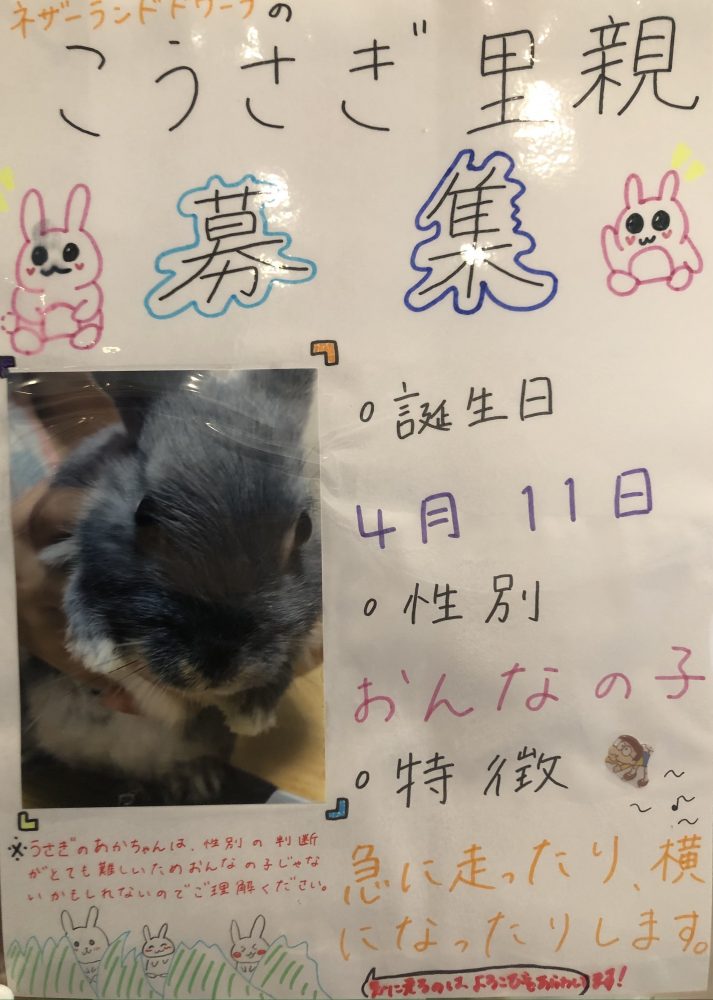 ネザーランドドワーフの
こうさぎ里親
募集
○誕生日
4月 11日
○性別
おんなの子
○特徴
急に走ったり、横
になったりします。
※うさぎのあかちゃんは、性別の判断
がとても難しいためおんなの子じゃな
いかもしれないのでご理解ください。
よろこびをあらわします!